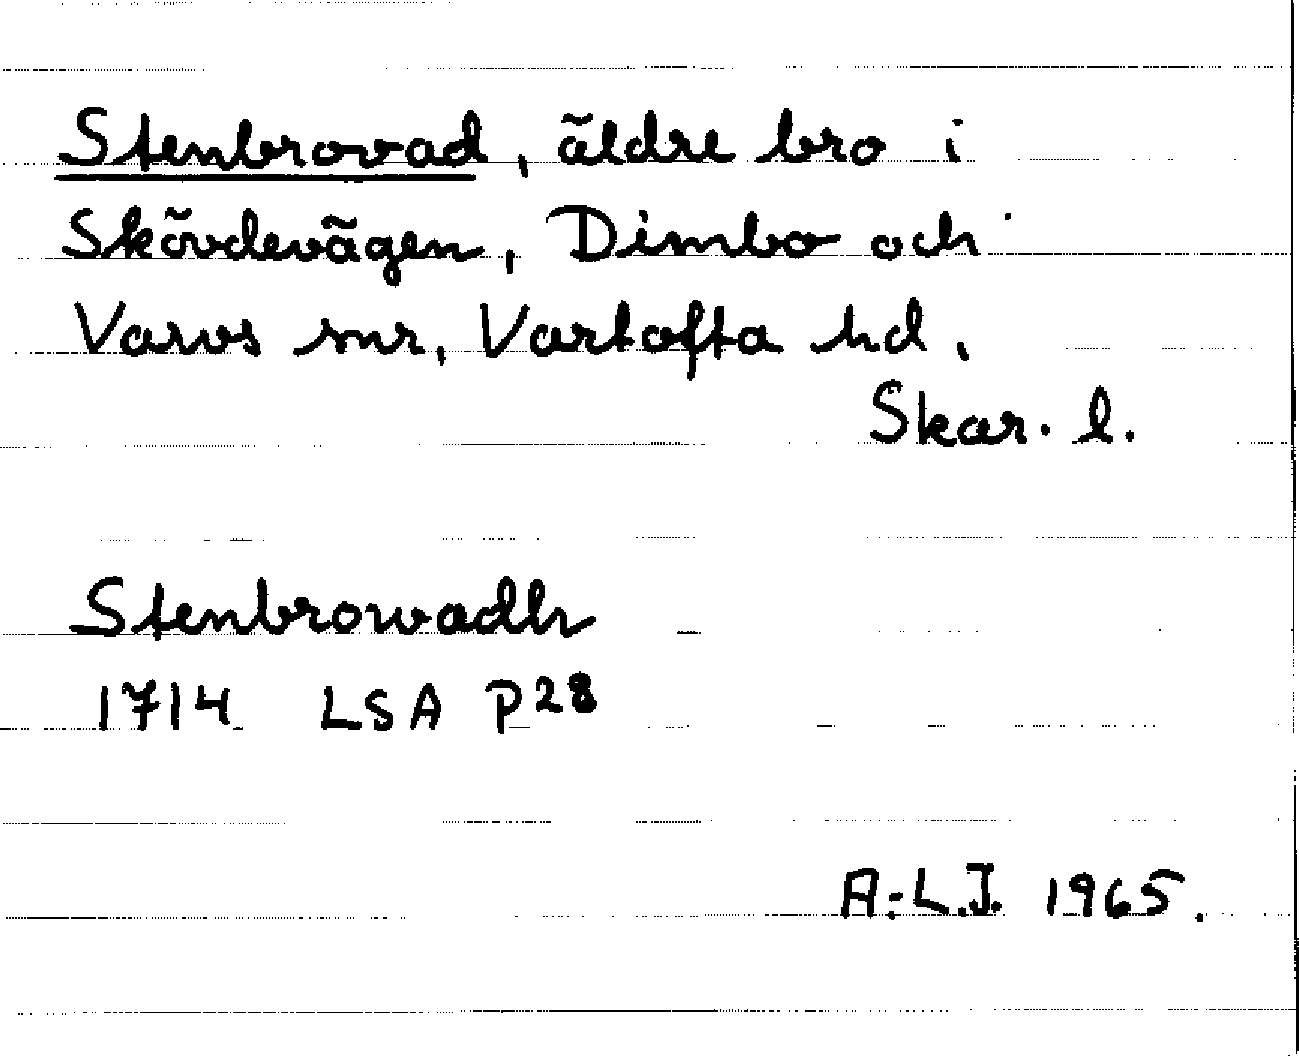 Stenbrovad, äldre bro i
Skövdevägen, Dimbo och
Varvs snr, Vartofta hd.
Skar. l.
Stenbrowadh
1714 LSA P28
A.-L.J. 1965.